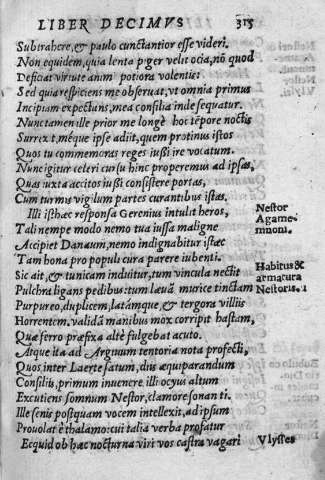 LIBER DECIMVS 315
Subtrahere, & paulo cunctantior esse videri.
Non equidem, quia lenta piger velit ocia, nō quod
Deficiat virtute animi potiora volentis:
Sed quia respiciens me observat, vt omnia primus
Incipiam expectans, mea consilia inde sequatur.
Nunc tamen ille prior me longè hoc tēpore noctis
Surrexit, méque ipse adiit, quem protinus istos
Quos tu commemoras reges iußi ire vocatum.
Nunc igitur celeri cursu hinc properemus ad ipsas,
Quas iuxta accitos iußi consistere portas,
Cum turmis vigilum partes curantibus istas.
Illi isthæc responsa Gerenius intulit heros,
Nestor
Tali nempe modo nemo tua iussa maligne
Agame-
Accipiet Danaum, nemo indignabitur istæc
mnoni.
Tam bona pro populi cura parere iubenti.
Sic ait, & tunicam induitur, tum vincula nectit
Habitus &
Pulchra ligans pedibus: tum lænā murice tinctam
armatura
Nestoris.
Purpureo, duplicem, latámque, & tergora villis
Horrentem. validā manibus mox corripit hastam,
Quæ ferro præfixa altè fulgebat acuto.
Atque ita ad Argiuum tentoria nota profecti,
Quos inter Laerte satum, diis æquiparandum
Consiliis, primum inuenere. illi ocyus altum
Excutiens somnum Nestor, clamore sonanti.
Ille senis postquam vocem intellexit, ad ipsum
Prouolat è thalamo: cui talia verba profatur
Ecquid ob hæc nocturna viri vos castra vagari
Vlysses